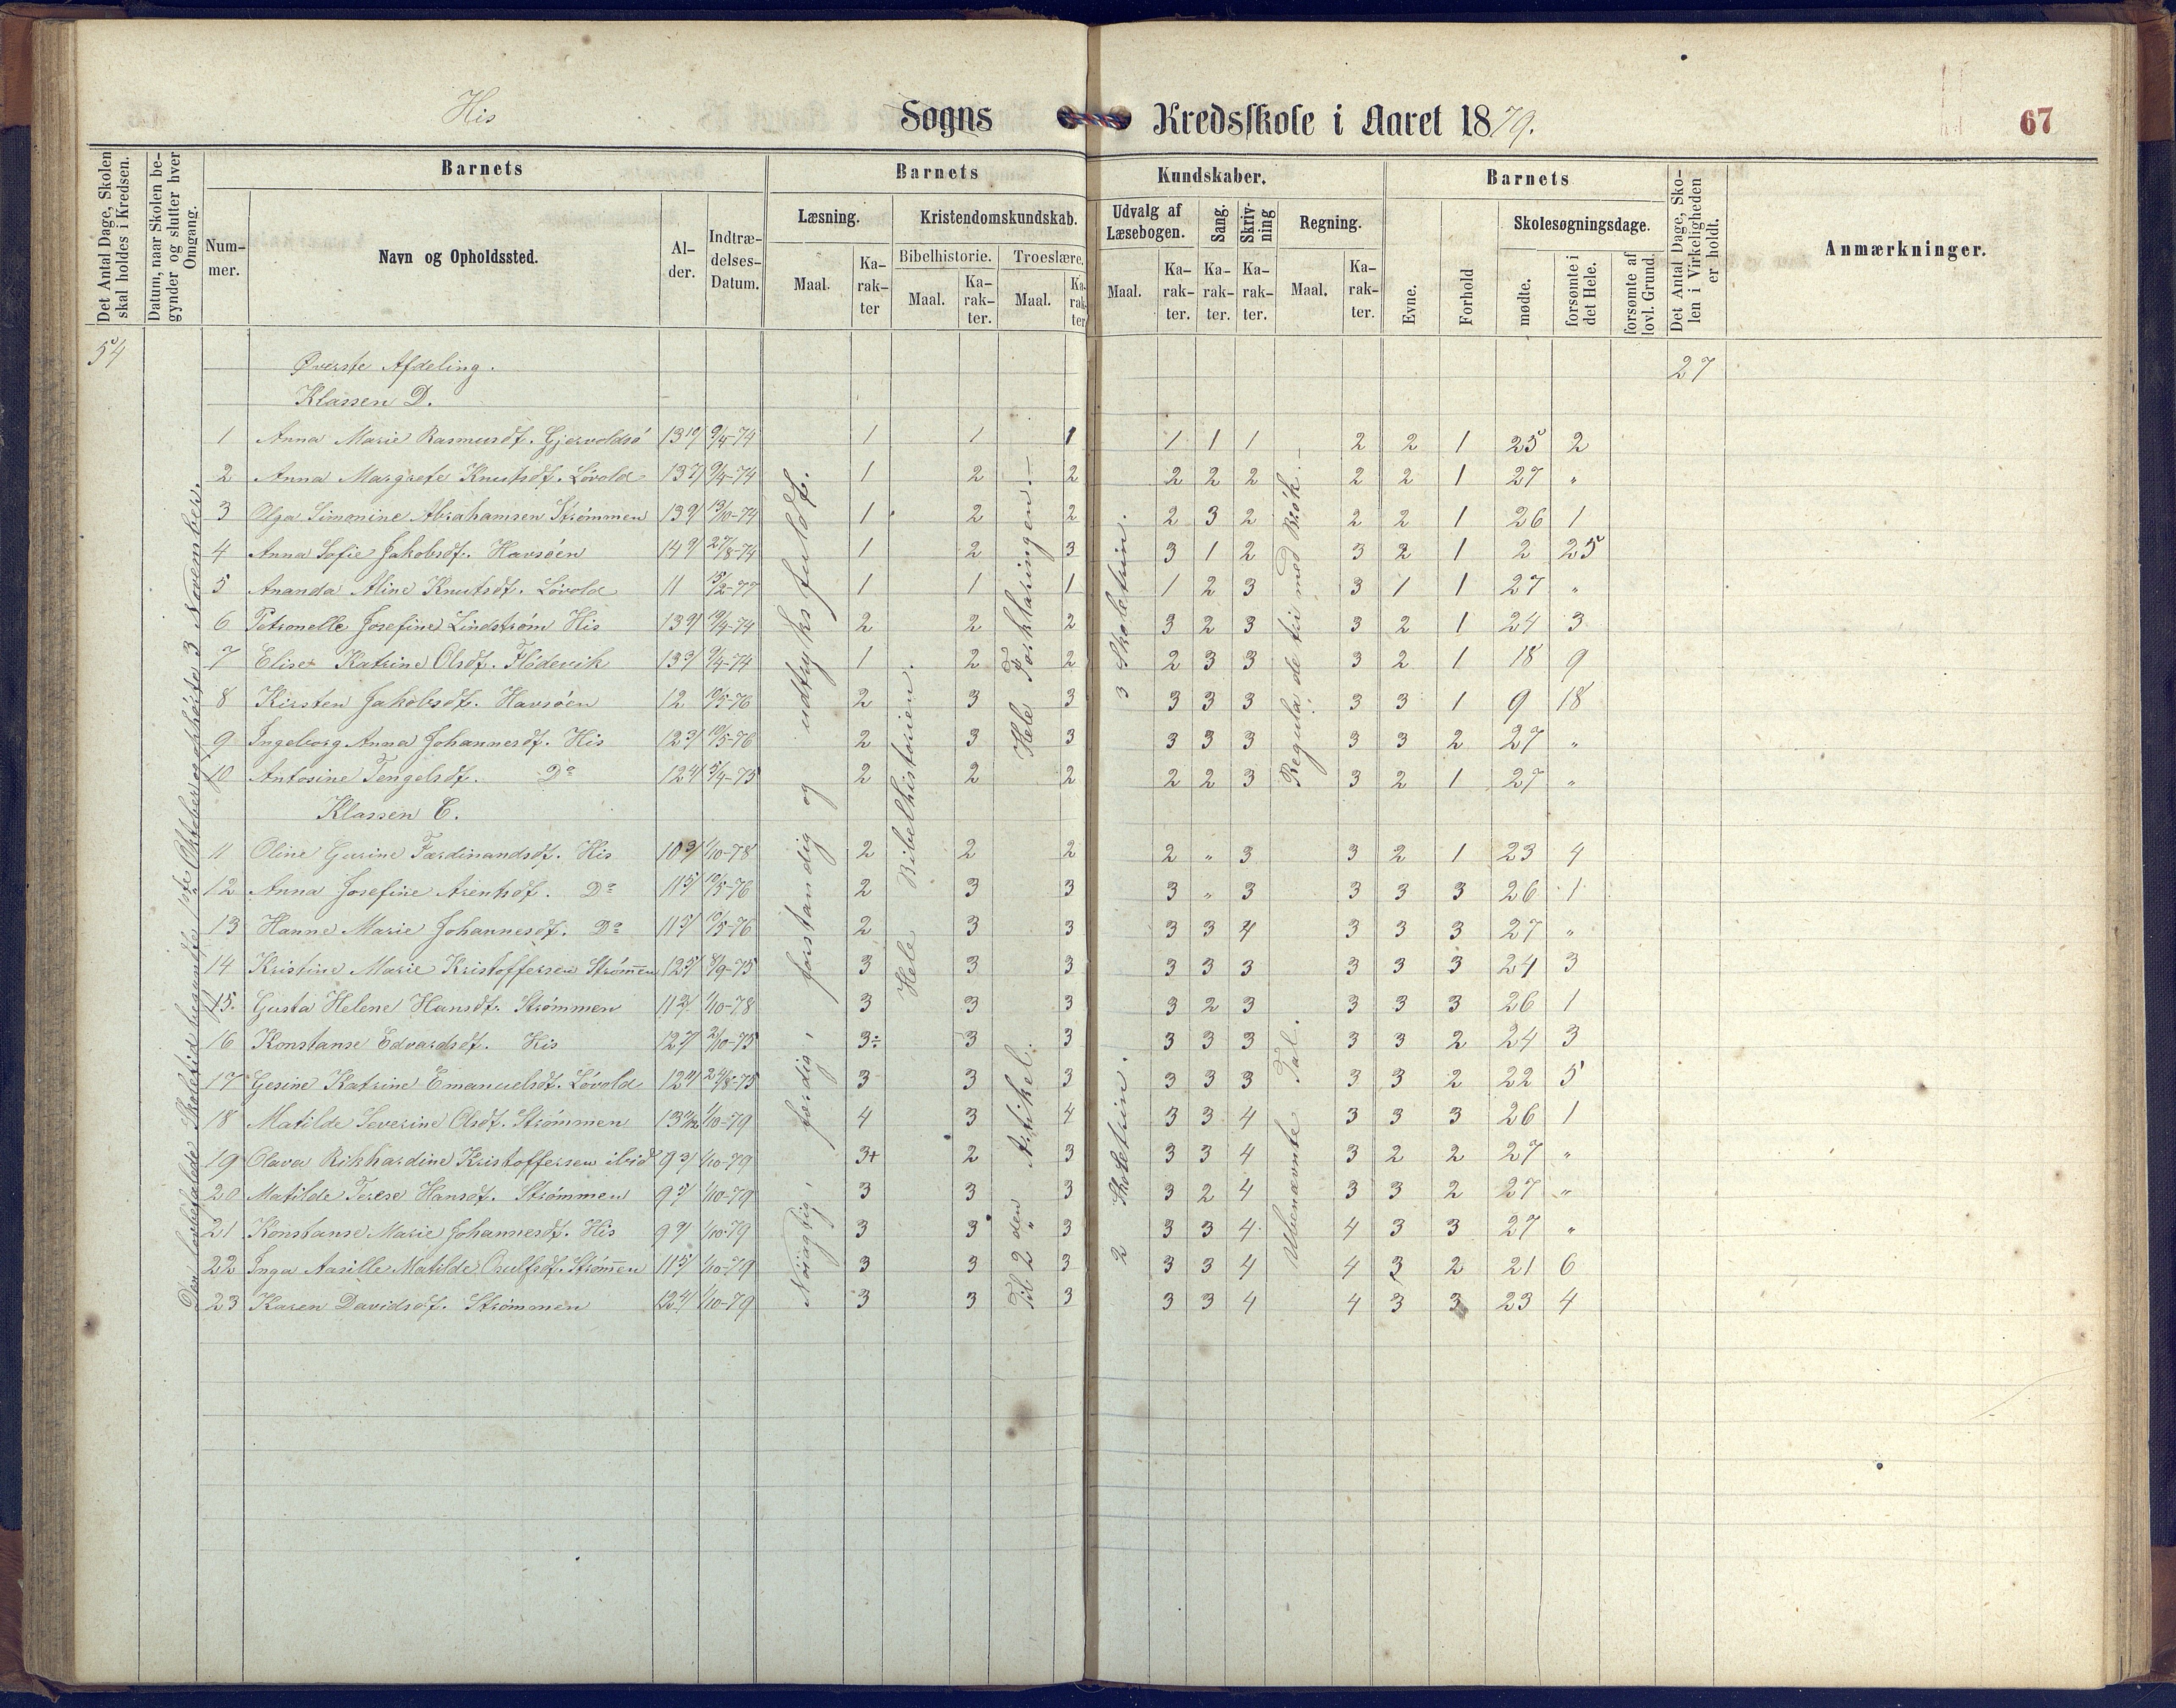 His Sogns Kredsskole i Aaret 1879. 67
Det Antal Dage, Skolen skal holdes i Kredsen.
Datum, naar Skolen begynder og slutter hver Omgang.
Barnets
Nummer.
Navn og Opholdssted.
Alder.
Indtrædelses-Datum.
Barnets Kundskaber.
Læsning.
Maal. Karakter
Kristendomskundskab.
Bibelhistorie. Troeslære.
Maal. Karakter. Maal. Karakter
Udvalg af Læsebogen.
Maal. Karakter.
Sang. Karakter.
Skrivning Karakter.
Regning.
Maal. Karakter.
Barnets
Evne. Forhold
Skolesøgningsdage.
mødte. forsømte i det Hele. forsømte af lovl. Grund.
Det Antal Dage, Skolen i Virkeligheden er holdt.
Anmærkninger.
54 Øverste Afdeling. 27
Klassen D.
1 Anna Marie Rasmusdt. Gjervoldsø 9/4-74 1 1 1 1 1 1 2 2 1 25 2
2 Anna Margrete Knutsdt. Løvold 9/4-74 1 2 2 2 2 2 2 2 1 27 "
3 Olga Simonine Abrahamsen Strømmen 13/10-74 1 2 2 2 3 2 2 2 1 26 1
4 Anna Sofie Jakobsdt. Havsøen 27/8-74 1 2 3 3 1 2 3 2 1 2 25
5 Ananda Aline Knutsdt. Løvold 11 1 1 1 1 2 3 3 1 1 27 "
6 Petronelle Josefine Lindstrøm His 2 2 2 3 2 3 3 2 1 24 3
7 Elise Katrine Olsdt. Flödevik 9/4-74 1 2 2 2 3 3 3 2 1 18 9
8 Kirsten Jakobsdt. Havsøen 12 10/5-76 2 3 3 3 3 3 3 3 1 9 18
9 Ingeborg Anna Johannesdt. His 10/5-76 2 3 3 3 3 3 3 3 2 27 "
10 Antosine Tengelsdt. Do 5/4-75 2 2 2 2 2 3 3 2 1 27 "
Klassen C.
11 Oline Gurine Ferdinandsdt. His 1/10-78 2 2 2 2 " 3 3 2 1 23 4
12 Anna Josefine Arentsdt. Do 10/5-76 2 3 3 3 " 3 3 3 3 26 1
13 Hanne Marie Johannesdt. Do 10/5-76 2 3 3 3 3 4 3 3 3 27 "
14 Kristine Marie Kristoffersen Strømmen 8/9-75 3 3 3 3 3 3 3 3 3 24 3
15. Gusta Helene Hansdt. Strømmen 1/10-78 3 3 3 3 2 3 3 3 3 26 1
16 Konstanse Edvardsdt. His 2/10-75 3÷ 3 3 3 3 3 3 3 2 24 3
17 Gesine Katrine Emanuelsdt. Løvold 24/8-75 3 3 3 3 3 3 3 3 2 22 5
18 Matilde Severine Olsdt. Strømmen 1/10-79 4 3 4 3 3 4 3 3 3 26 1
19 Olava Rikhardine Kristoffersen ibid 1/10-79 3+ 2 3 3 3 4 3 2 2 27 "
20 Matilde Terese Hansdt. Strømmen 1/10-79 3 3 3 3 2 4 3 3 2 27 "
21 Konstanse Marie Johannesdt. His 1/10-79 3 3 3 3 3 4 4 3 3 27 "
22 Inga Aasille Matilde Osulfsdt. Strømmen 1/10-79 3 3 3 3 3 4 4 3 2 21 6
23 Karen Davidsdt. Strømmen 1/10-79 3 3 3 3 3 4 4 3 3 23 4
Den lovbefalede Skoletid begyndte 1ste Oktober og ophørte 3 November.
Nøiagtig, færdig, forstandig og udtryksfuldt.
Hele Bibelhistorien.
Hele Forklaringen.
Til 2 den Artikel.
3 Skoletrin.
2 Skoletrin.
Regula de tri med Brøk.
Ubenævnte Tal.